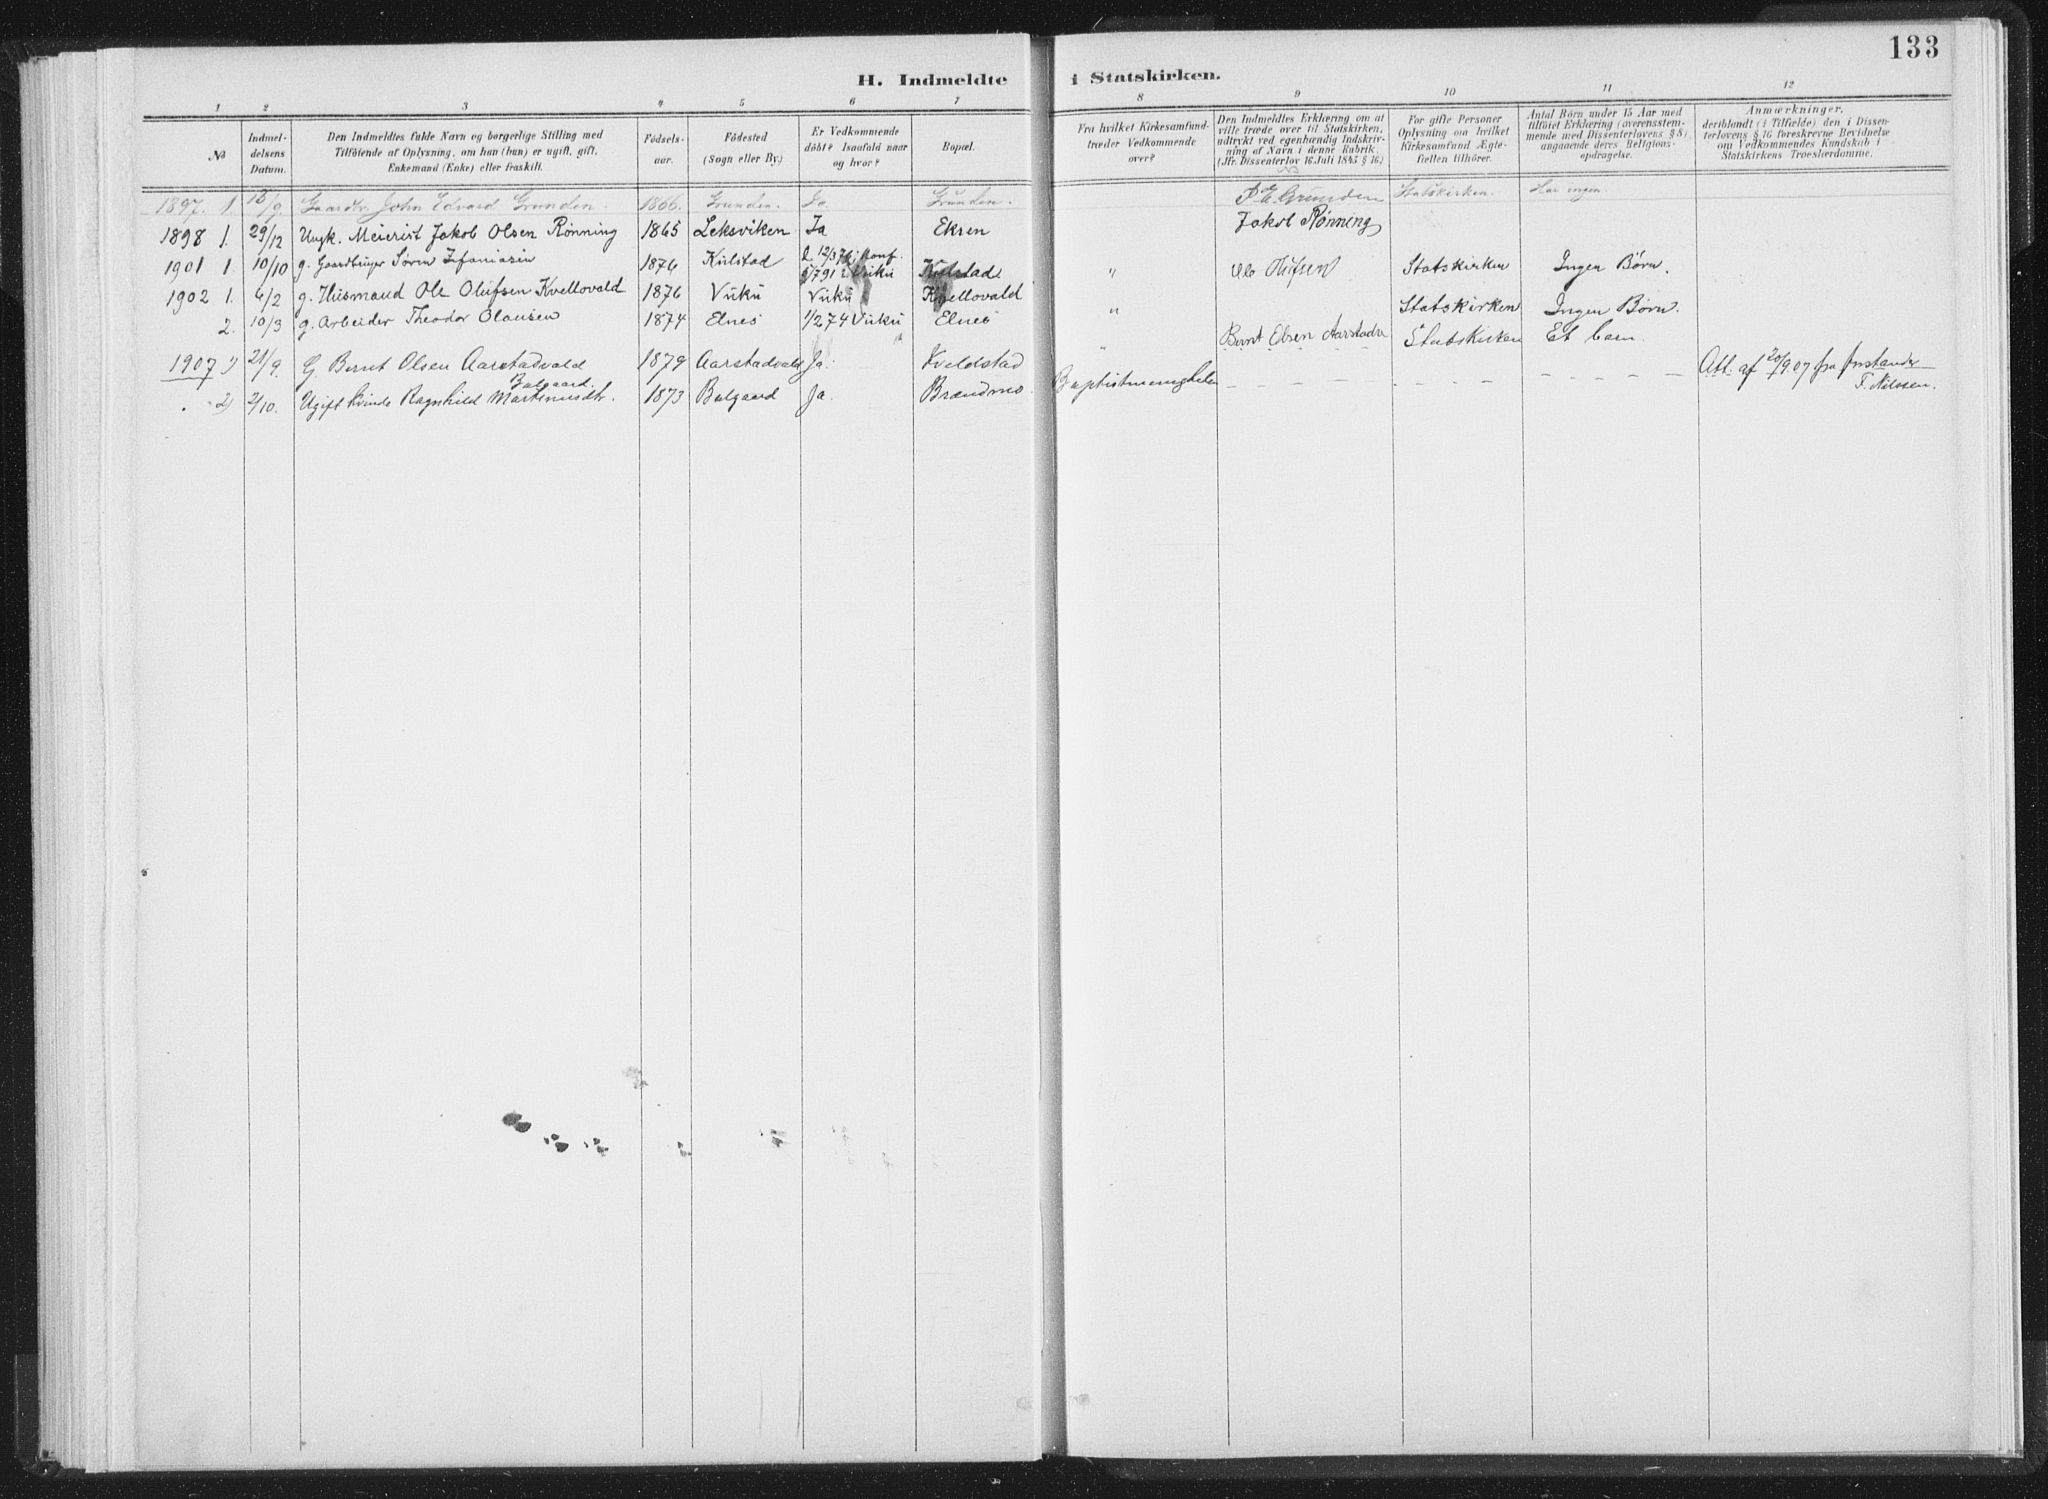 133
H. Indmeldte i Statskirken.
1 2 3 4 5 6 7 8 9 10 11 12
No
Indmel-
delsens
Datum.
Den Indmeldtes fulde Navn og borgerlige Stilling med
Tilföiende af Oplysning, om han (hun) er ugift, gift,
Enkemand (Enke) eller fraskilt.
Födsels-
aar.
Födested
(Sogn eller By.)
Er Vedkommende
döbt? Isaafald naar
og hvor?
Bopæl.
Fra hvilket Kirkesamfund-
træder Vedkommende
over?
Den Indmeldtes Erklæring om at
ville træde over til Statskirken,
udtrykt ved egenhændig Indskriv-
ning af Navn i denne Rubrik.
(Jfr. Dissenterlov 16 Juli 1845 § 16.)
For gifte Personer
Oplysning om hvilket
Kirkesamfund Ægte-
fællen tilhörer.
Antal Börn under 15 Aar med
tilföiet Erklæring (overensstem-
mende med Dissenterlovens § 8),
angaaende deres Religions-
opdragelse.
Anmærkninger,
deriblandt (i Tilfælde) den i Dissen-
terlovens § 16 foreskrevne Bevidnelse
om Vedkommendes Kundskab i
Statskirkens Troeslærdomme.
1897. 1. 18/9. Gaardbr. John Edvard Grunden. 1866. Grunden. Ja. Grunden. J. E. Grunden Statskirken. Har ingen.
1898 1. 29/12 Ungk. Meierist Jakob Olsen Rønning 1865 Leksviken Ja Ekren Jakob Rønning
1901 1. 10/10 g. Gaardbruger Søren Zefaniasen 1876 Kulstad 12/3 76, Konf. Vuku Kulstad " Statskirken Ingen Børn.
1902 1. 6/2 g. Husmand Ole Olufsen Kvellovald 1876 Vuku Vuku Kvellovald " Ole Olufsen Statskirken Ingen Børn.
2. 10/3 g. Arbeider Theodor Olausen 1874 Elnes 1/2 74 Vuku Elnes " Statskirken Et barn.
1907 1) 21/9. G. Bernt Olsen Aarstadvald 1879 Aarstadvald Ja. Kveldstad Bernt Olsen Aarstadv
Balgaard.
2) 2/10. Ugift Kvinde Ragnhild Martinusdtr. 1873 Balgaard Ja. Brændmo. Baptistmenigheden — — — — Att. af 20/9.07 fra Forstander
F. Nilssen.